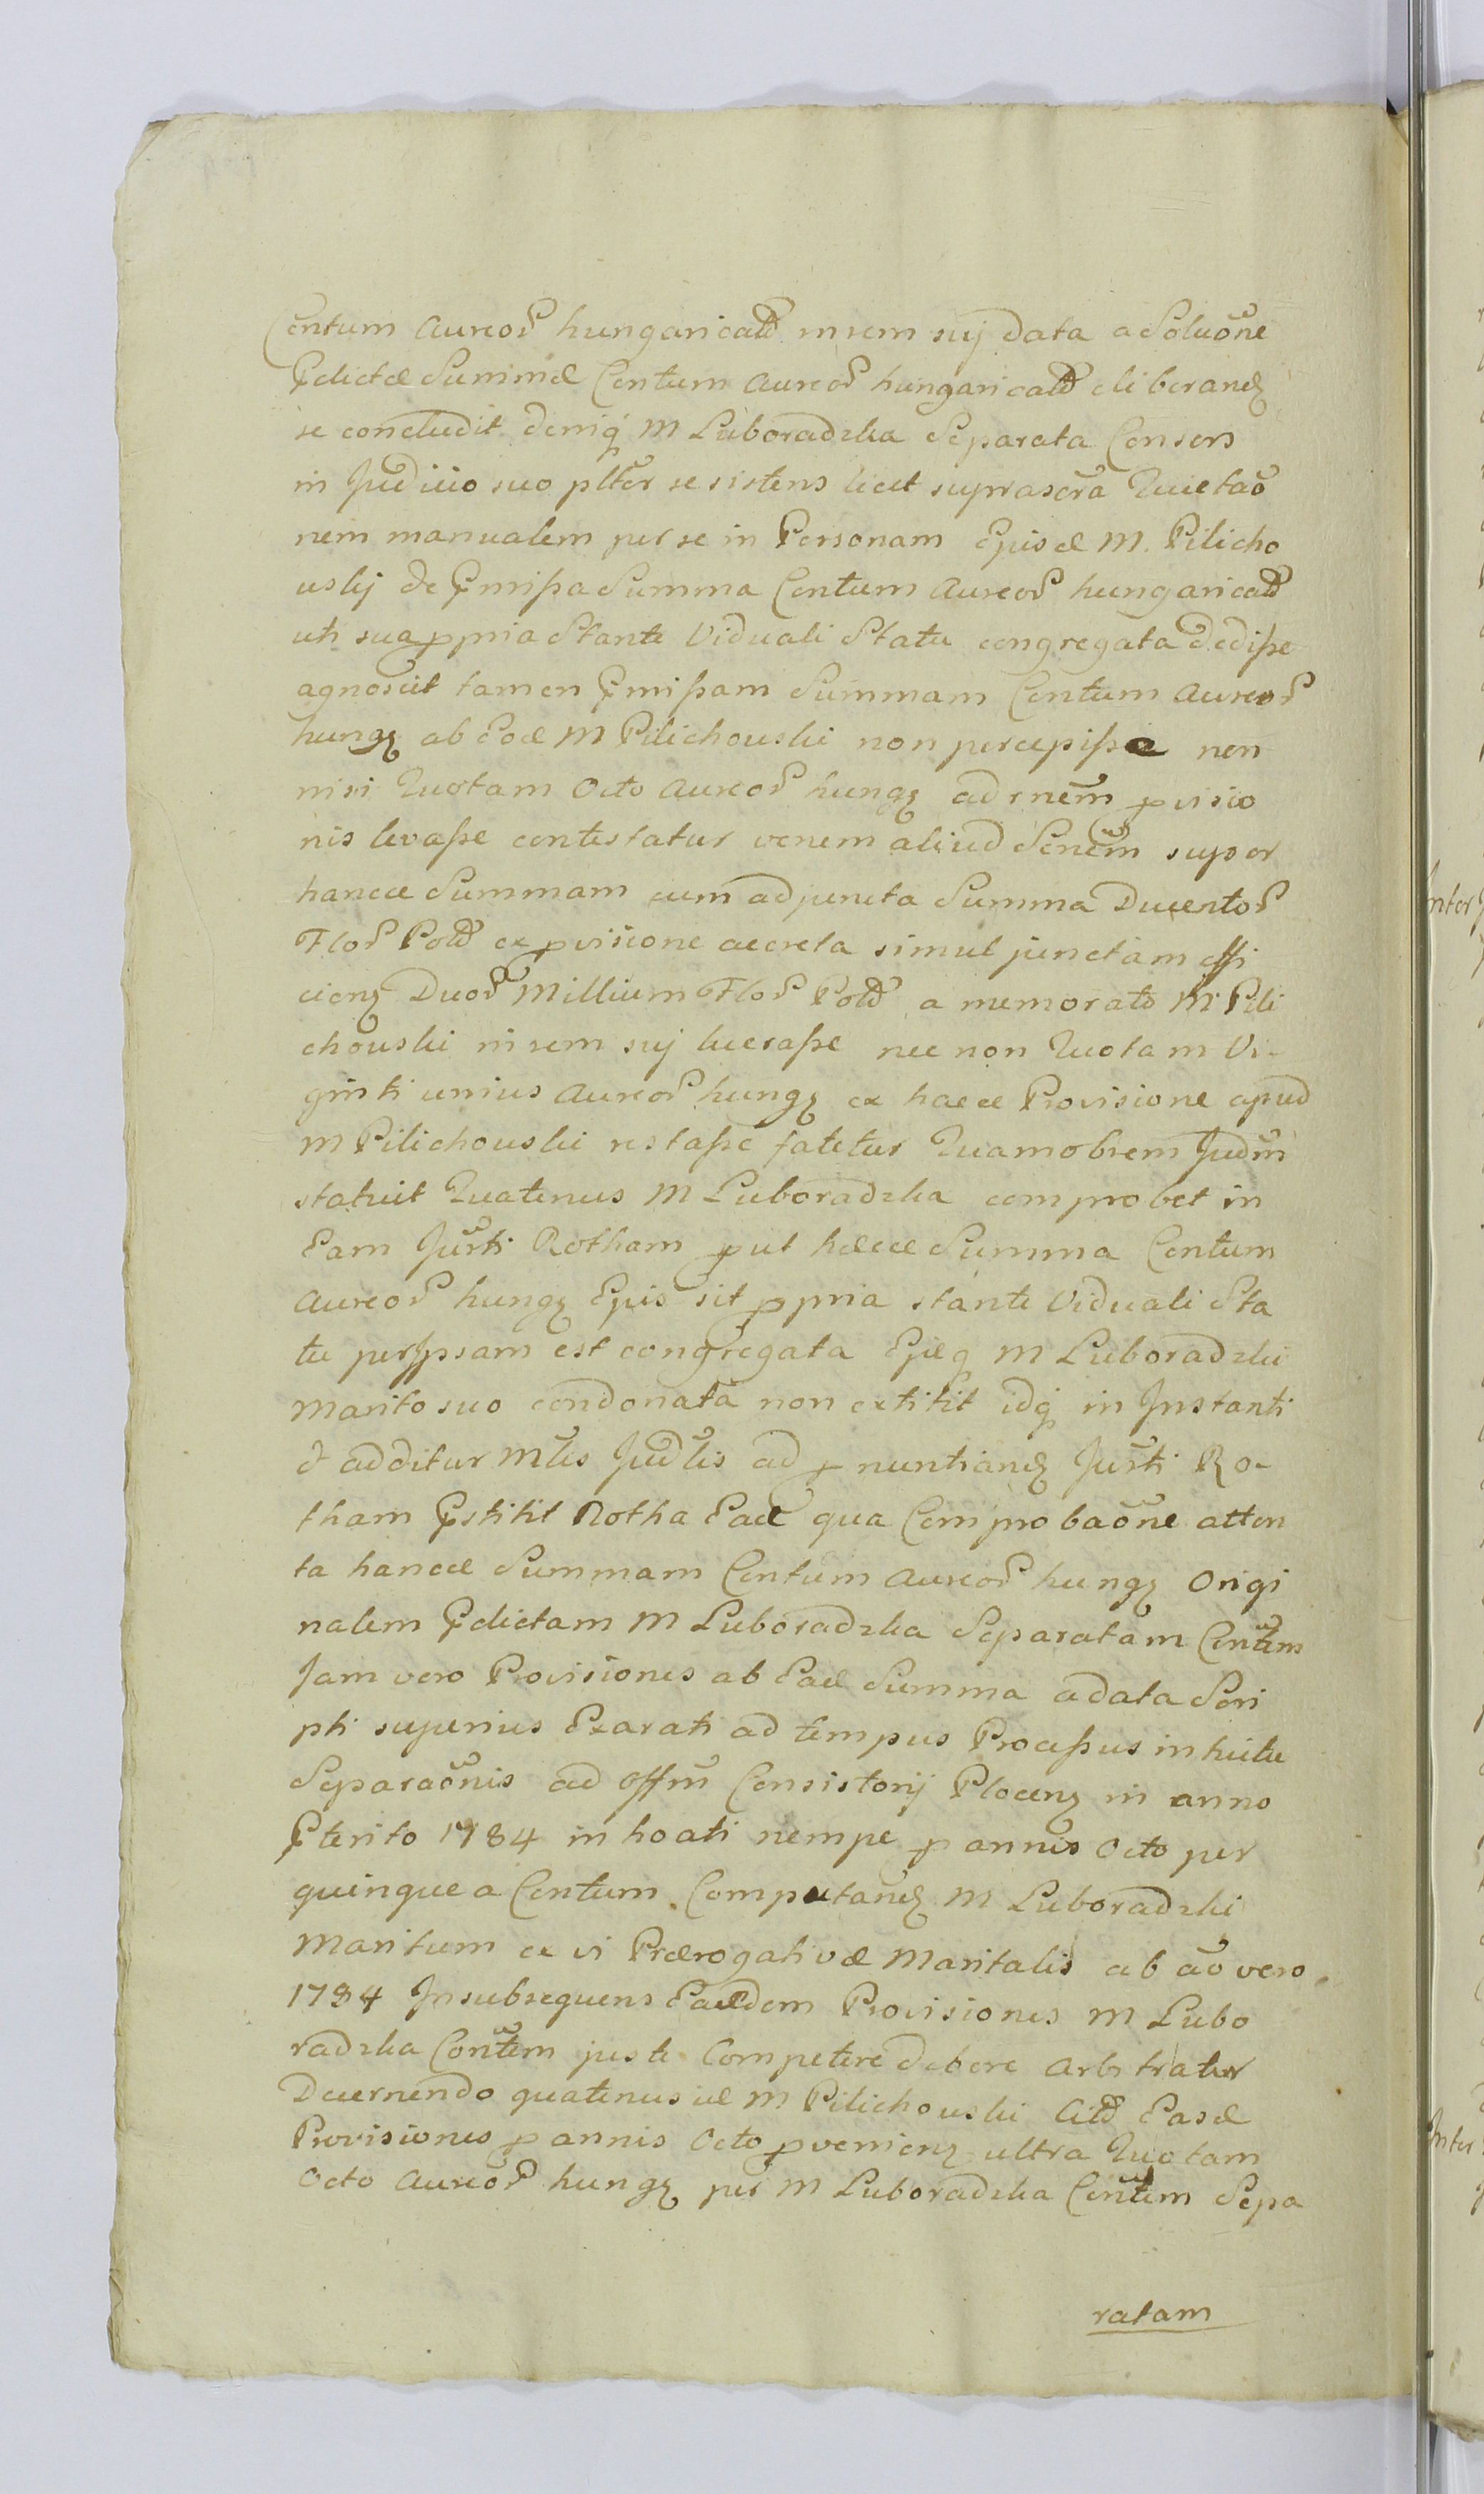 Centum Aureor hungaricald in rem suj data a Soluõne
Pdictæ Summæ Centum Aureor hungaricald eliberandz
se concludit deniq M Luboradzka Separata Consors
in Judicio suo pltẽr se sistens licet suprascra Quietaõ
nem manualem per se in Personam Ejusd M. Pilicho
wskj de Pmißa Summa Centum Aureor hungaricald
uti sua ppria Stante Viduali Statu congregata dediße
agnoscit tamen Pmißam Summam Centum Aureor
hungz ab Eod M Pilichowski non percepiße non
nisi Quotam Octo Aureor hungz ad rnẽm pvisio
nis levaße contestatur verum aliud Senẽm super
hancce Summam cum adjuncta Summa Ducentor
Flor Pold ex pvisione accreta simul junctam effi
cienz Duor Millium Flor Pold a memorato M Pili
chowski in rem suj lucraße nec non Quotam Vi-
ginti unius Aureor hungz ex hacce Provisione apud
M Pilichowski restaße fatetur Quamobrem Judm
statuit Quatenus M Luboradzka comprobet in
Eam Jurti Rotham put hæcce Summa Centum
Aureor hungz Ejus sit ppria stante Viduali Sta
tu per Jpsam est congregata Ejdq M Luboradzki
Marito suo condonata non extitit idq in Jnstanti
& additur Mtis Judlis ad pnuntiandz Jurti Ro-
tham Pstitit Rotha Ead qua Comprobaõne atten
ta hancce Summam Centum Aureor hungz Origi
nalem Pdictam M Luboradzka Separatam Contẽm
Jam vero Provisiones ab Ead Summa a data Scri
pti superius Exarati ad tempus Proceßus intuitu
Separaõnis ad Offm Consistorij Plocenz in anno
Pterito 1784 inhoati nempe p annis Octo per
quinque a Centum Computandz M Luboradzki
Maritum ex vi Prærogativæ Maritalis ab aõ vero
1784 Jnsubsequens Easdem Provisiones M Lubo
radzka Contẽm juste Competere debere arbitratur
Decernendo quatenus id M Pilichowski Citd Easd
Provisiones p annis Octo pvenienz ultra Quotam
Octo Aureor hungz per M Luboradzka Contẽm Sepa
ratam